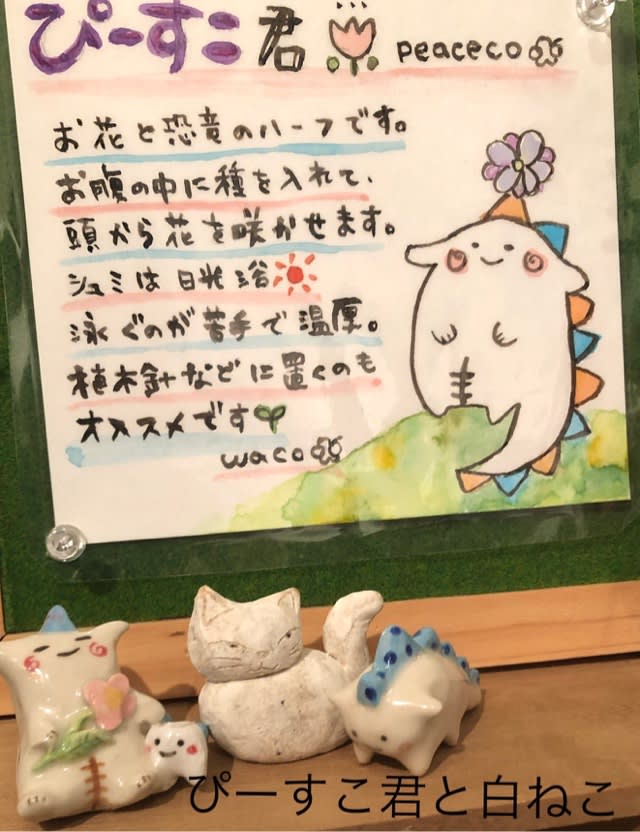 ぴーすこ君 peaceco
お花と恐竜のハーフです。
お腹の中に種を入れて、
頭から花を咲かせます。
シュミは日光浴
泳ぐのが苦手で温厚。
植木鉢などに置くのも
オススメです
waco
ぴーすこ君と白ねこ